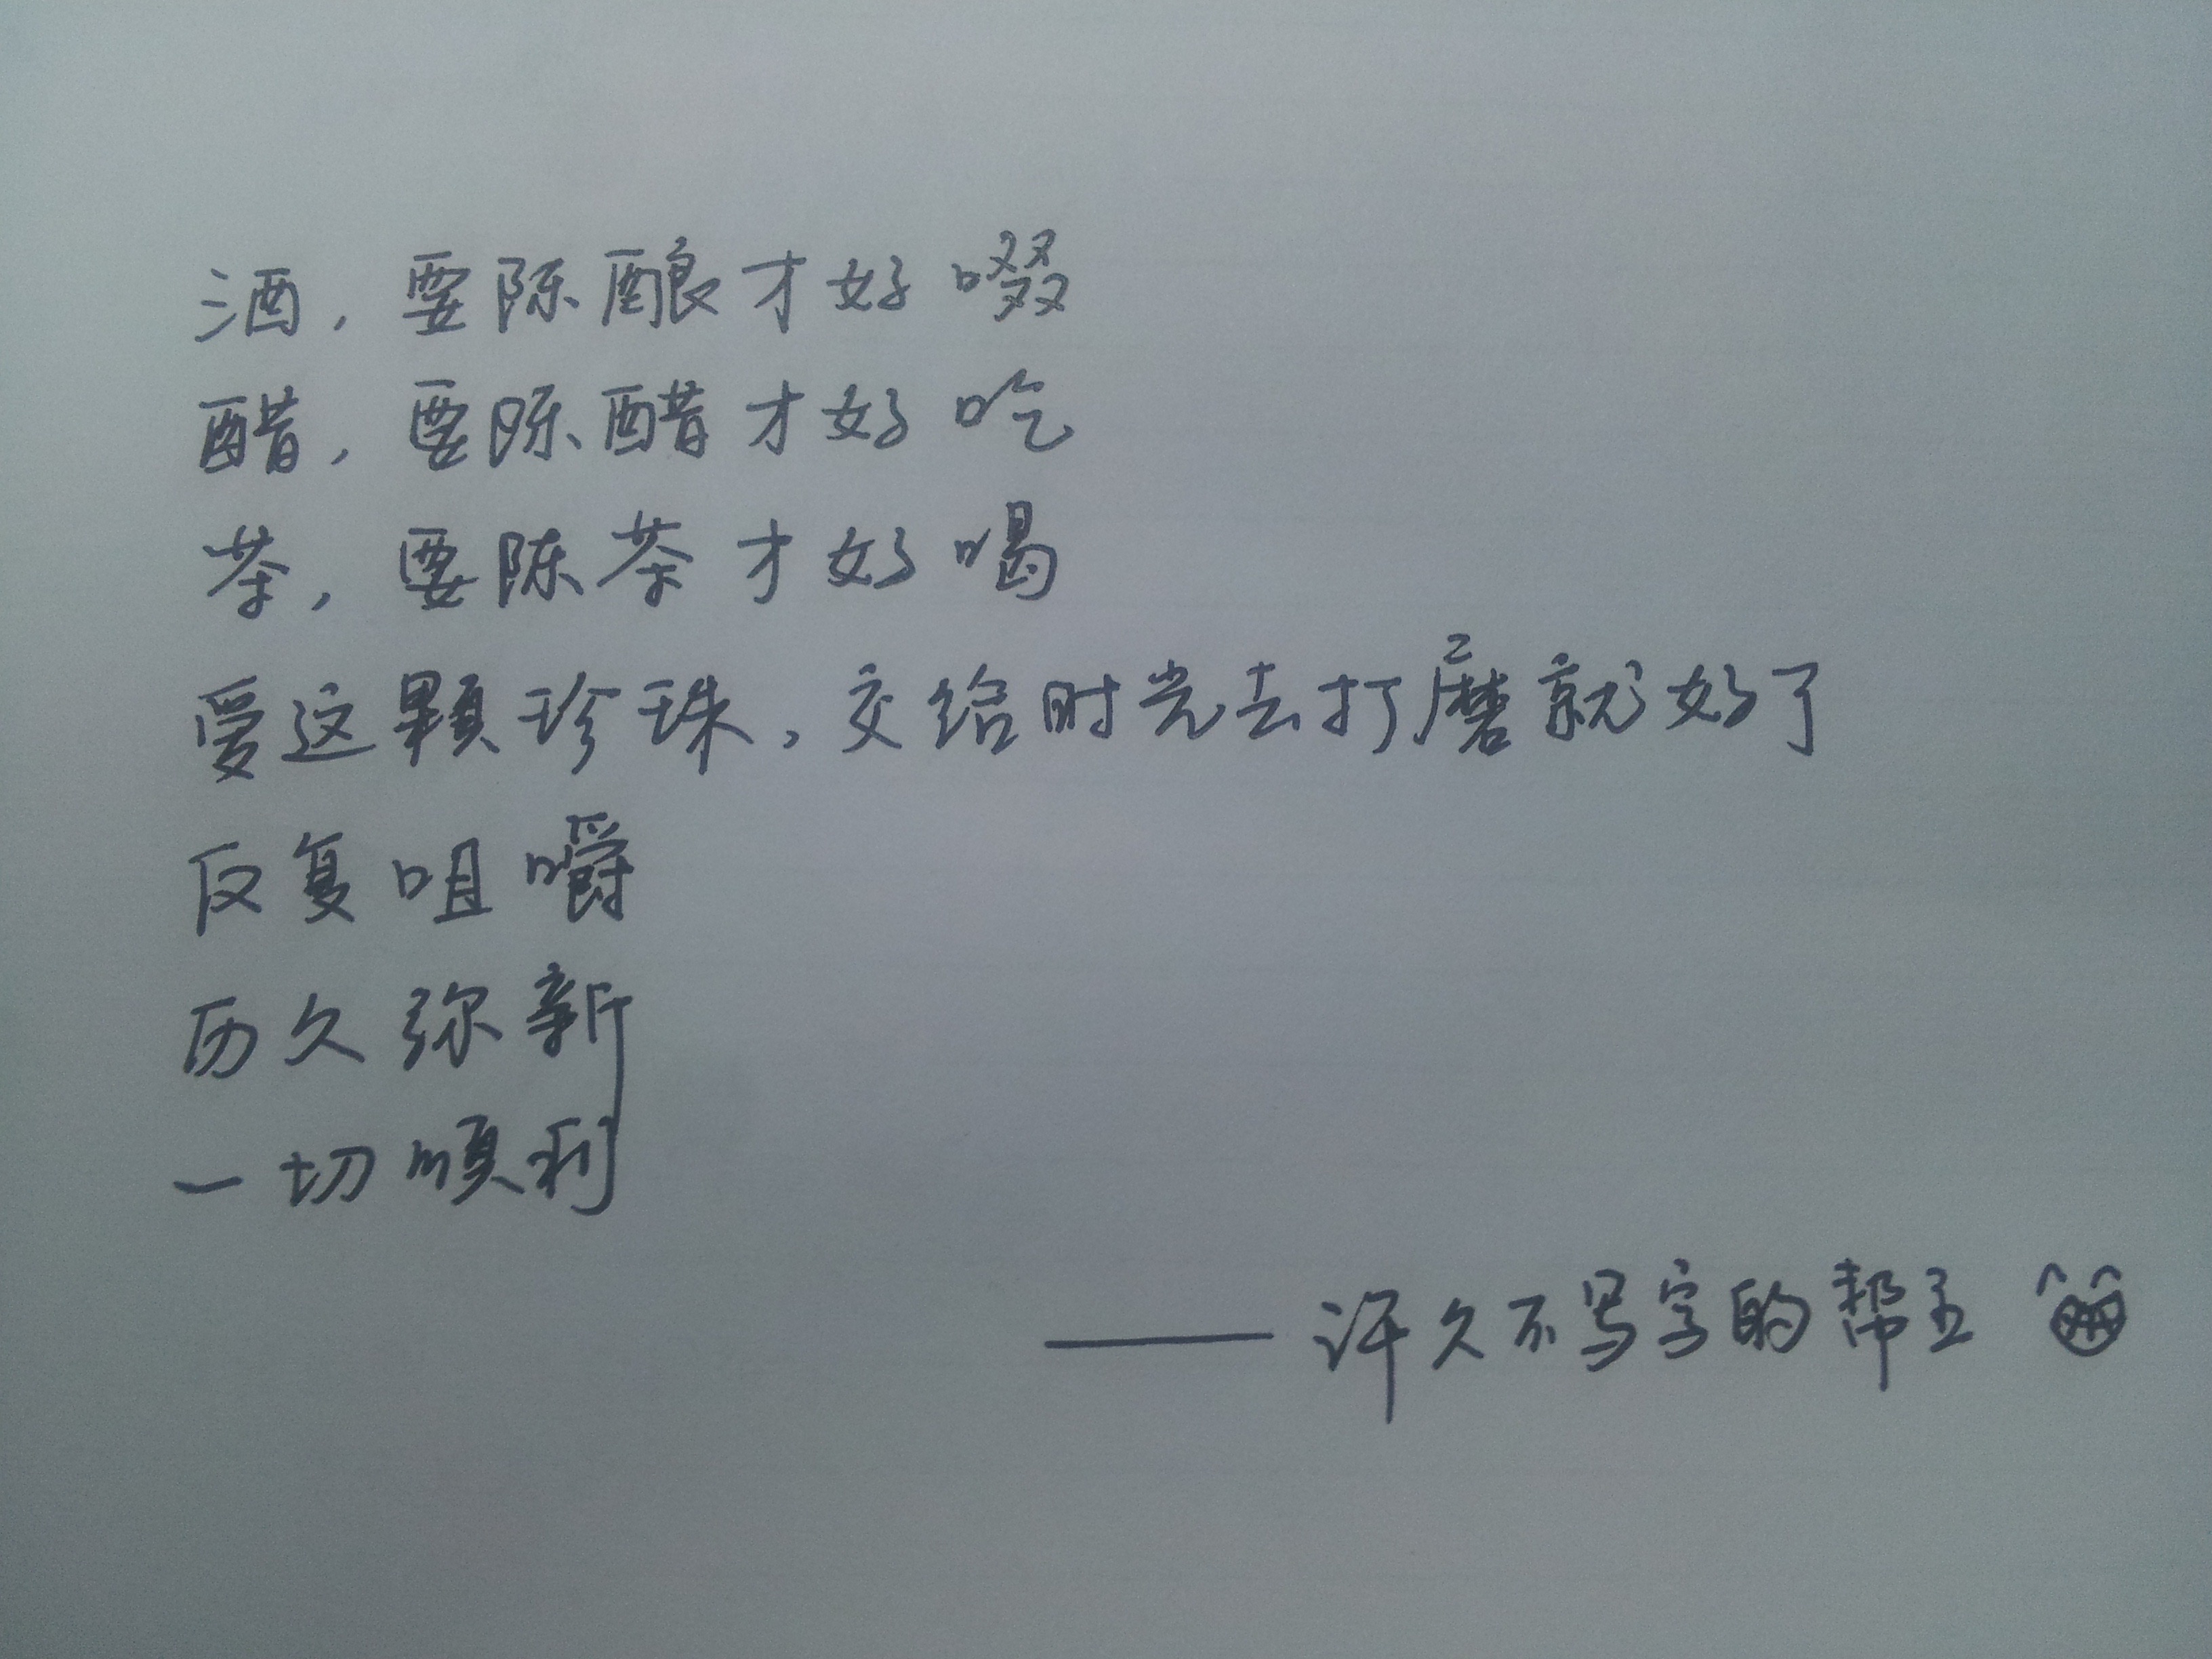 酒，要陈酿才好啜
醋，要陈醋才好吃
茶，要陈茶才好喝
爱这颗珍珠，交给时光去打磨就好了
反复咀嚼
历久弥新
一切顺利
——许久不写字的帮主